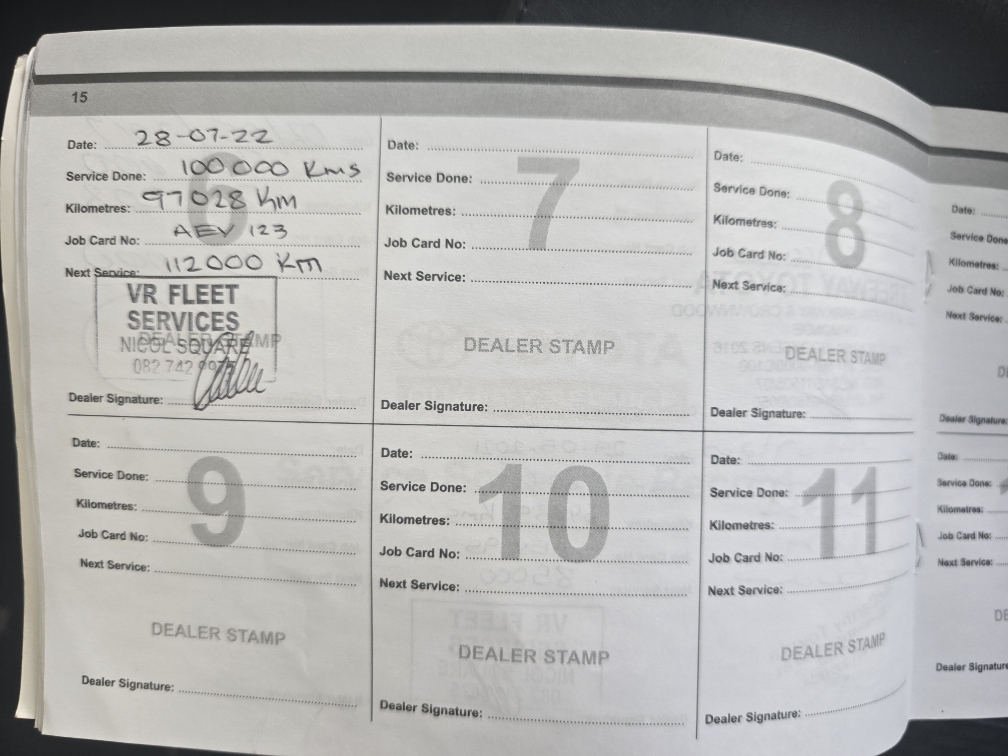 15
Date: 28-07-22
Service Done: 100 000 Kms
Kilometres: 97028 Km
Job Card No: AEV 123
Next Service: 112000 Km
6
VR FLEET
SERVICES
NICOL SQUARE
DEALER STAMP
082 742
Dealer Signature:
Date:
Service Done:
Kilometres:
Job Card No:
Next Service:
7
DEALER STAMP
Dealer Signature:
Date:
Service Done:
Kilometres:
Job Card No:
Next Service:
8
DEALER STAMP
Dealer Signature:
Date:
Service Done:
Kilometres:
Job Card No:
Next Service:
Dealer Signature:
Date:
Service Done:
Kilometres:
Job Card No:
Next Service:
9
DEALER STAMP
Dealer Signature:
Date:
Service Done:
Kilometres:
Job Card No:
Next Service:
10
DEALER STAMP
Dealer Signature:
Date:
Service Done:
Kilometres:
Job Card No:
Next Service:
11
DEALER STAMP
Dealer Signature:
Date:
Service Done:
Kilometres:
Job Card No:
Next Service:
Dealer Signature